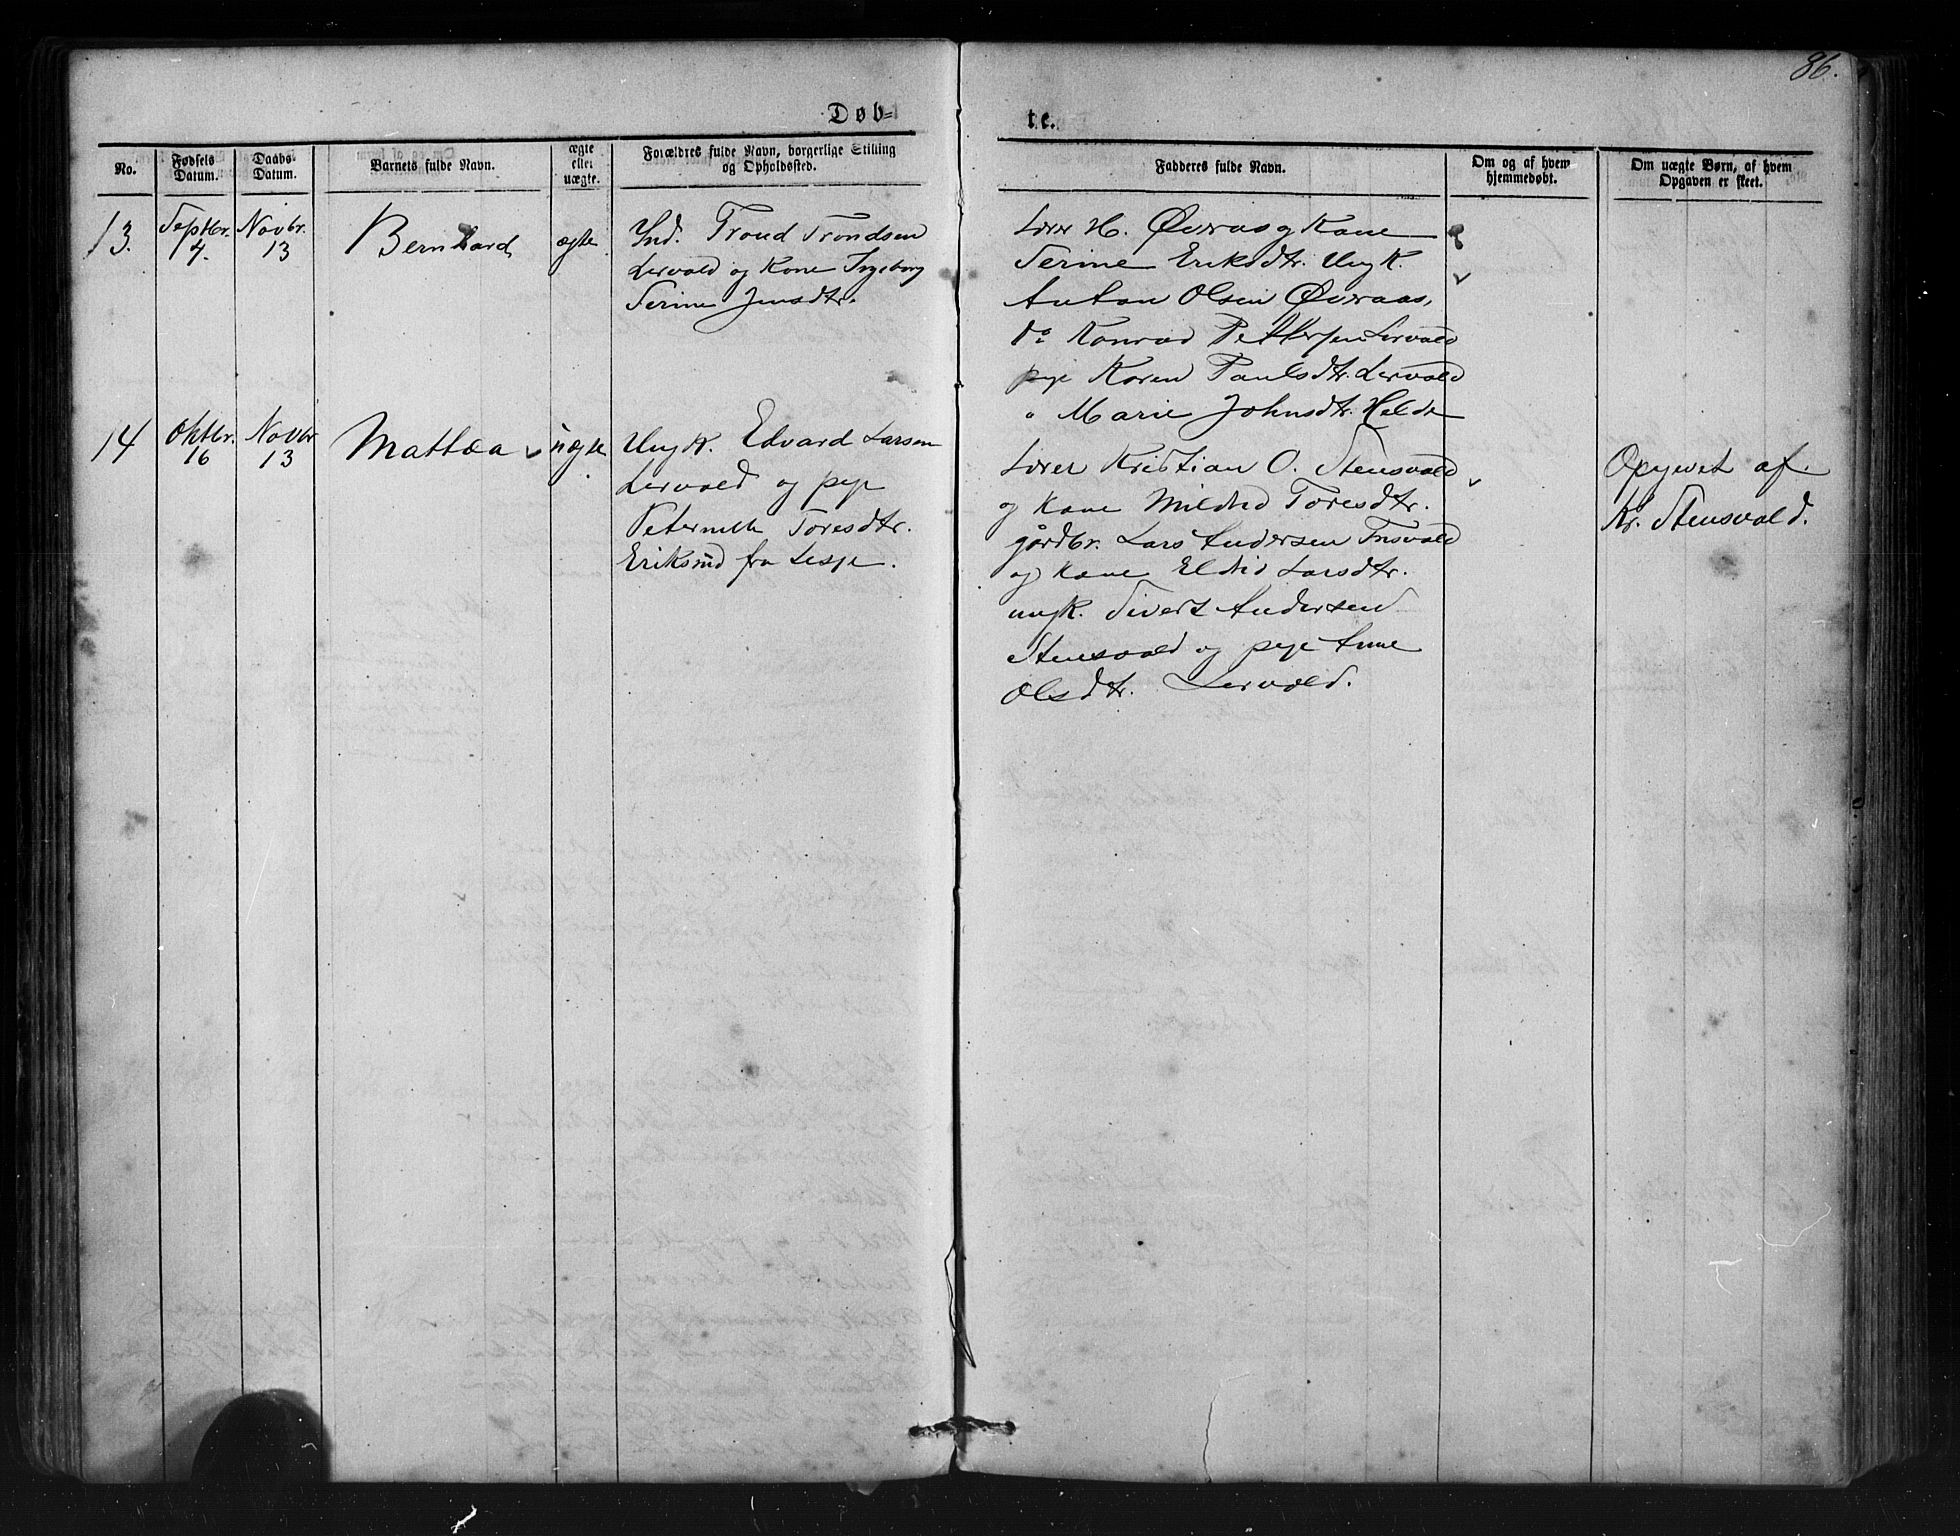 86.
Døb=
te.
No.
Fødsels Datum.
Daabs Datum.
Barnets fulde Navn.
ægte eller uægte.
Forældres fulde Navn, borgerlige Stilling og Opholdssted.
Fadderes fulde Navn.
Om og af hvem hjemmedøbt.
Om uægte Børn, af hvem Opgaven er skeet.
13.
Septbr. 4.
Novbr. 13
Bernhard
ægte
Ind. Trond Trondsen
Lervold og Kone Ingeborg
Serine Jensdtr.
Lærer H. Øveraas og Kone
Serine Eriksdtr. Ungk.
Anton Olsen Øveraas,
do Konrad Pettersen Lervold
pige Karen Paulsdtr. Lervold
" Marie Johnsdtr. Helde
14
Oktbr. 16
Novbr. 13
Mathea
uægte
Ungk. Edvard Larsen
Lervold og pige
Peternelle Toresdtr.
Eriksrud fra Lesje.
Lærer Kristian O. Stensvold
og Kone Mildrid Toresdtr.
gårdbr. Lars Andersen
og Kone Eldrid Larsdtr.
ungk. Sivert Andersen
Stensvold og pige Anne
Olsdtr. Lervold.
Opgivet af
Kr. Stensvold.